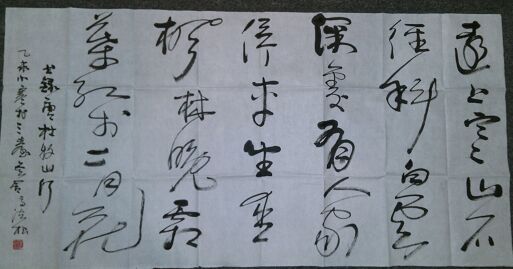 遠上寒山石
徑斜白雲
深處有人家
停車坐愛
楓林晚霜
葉紅於二月花
書錄唐杜牧山行
乙未小寒